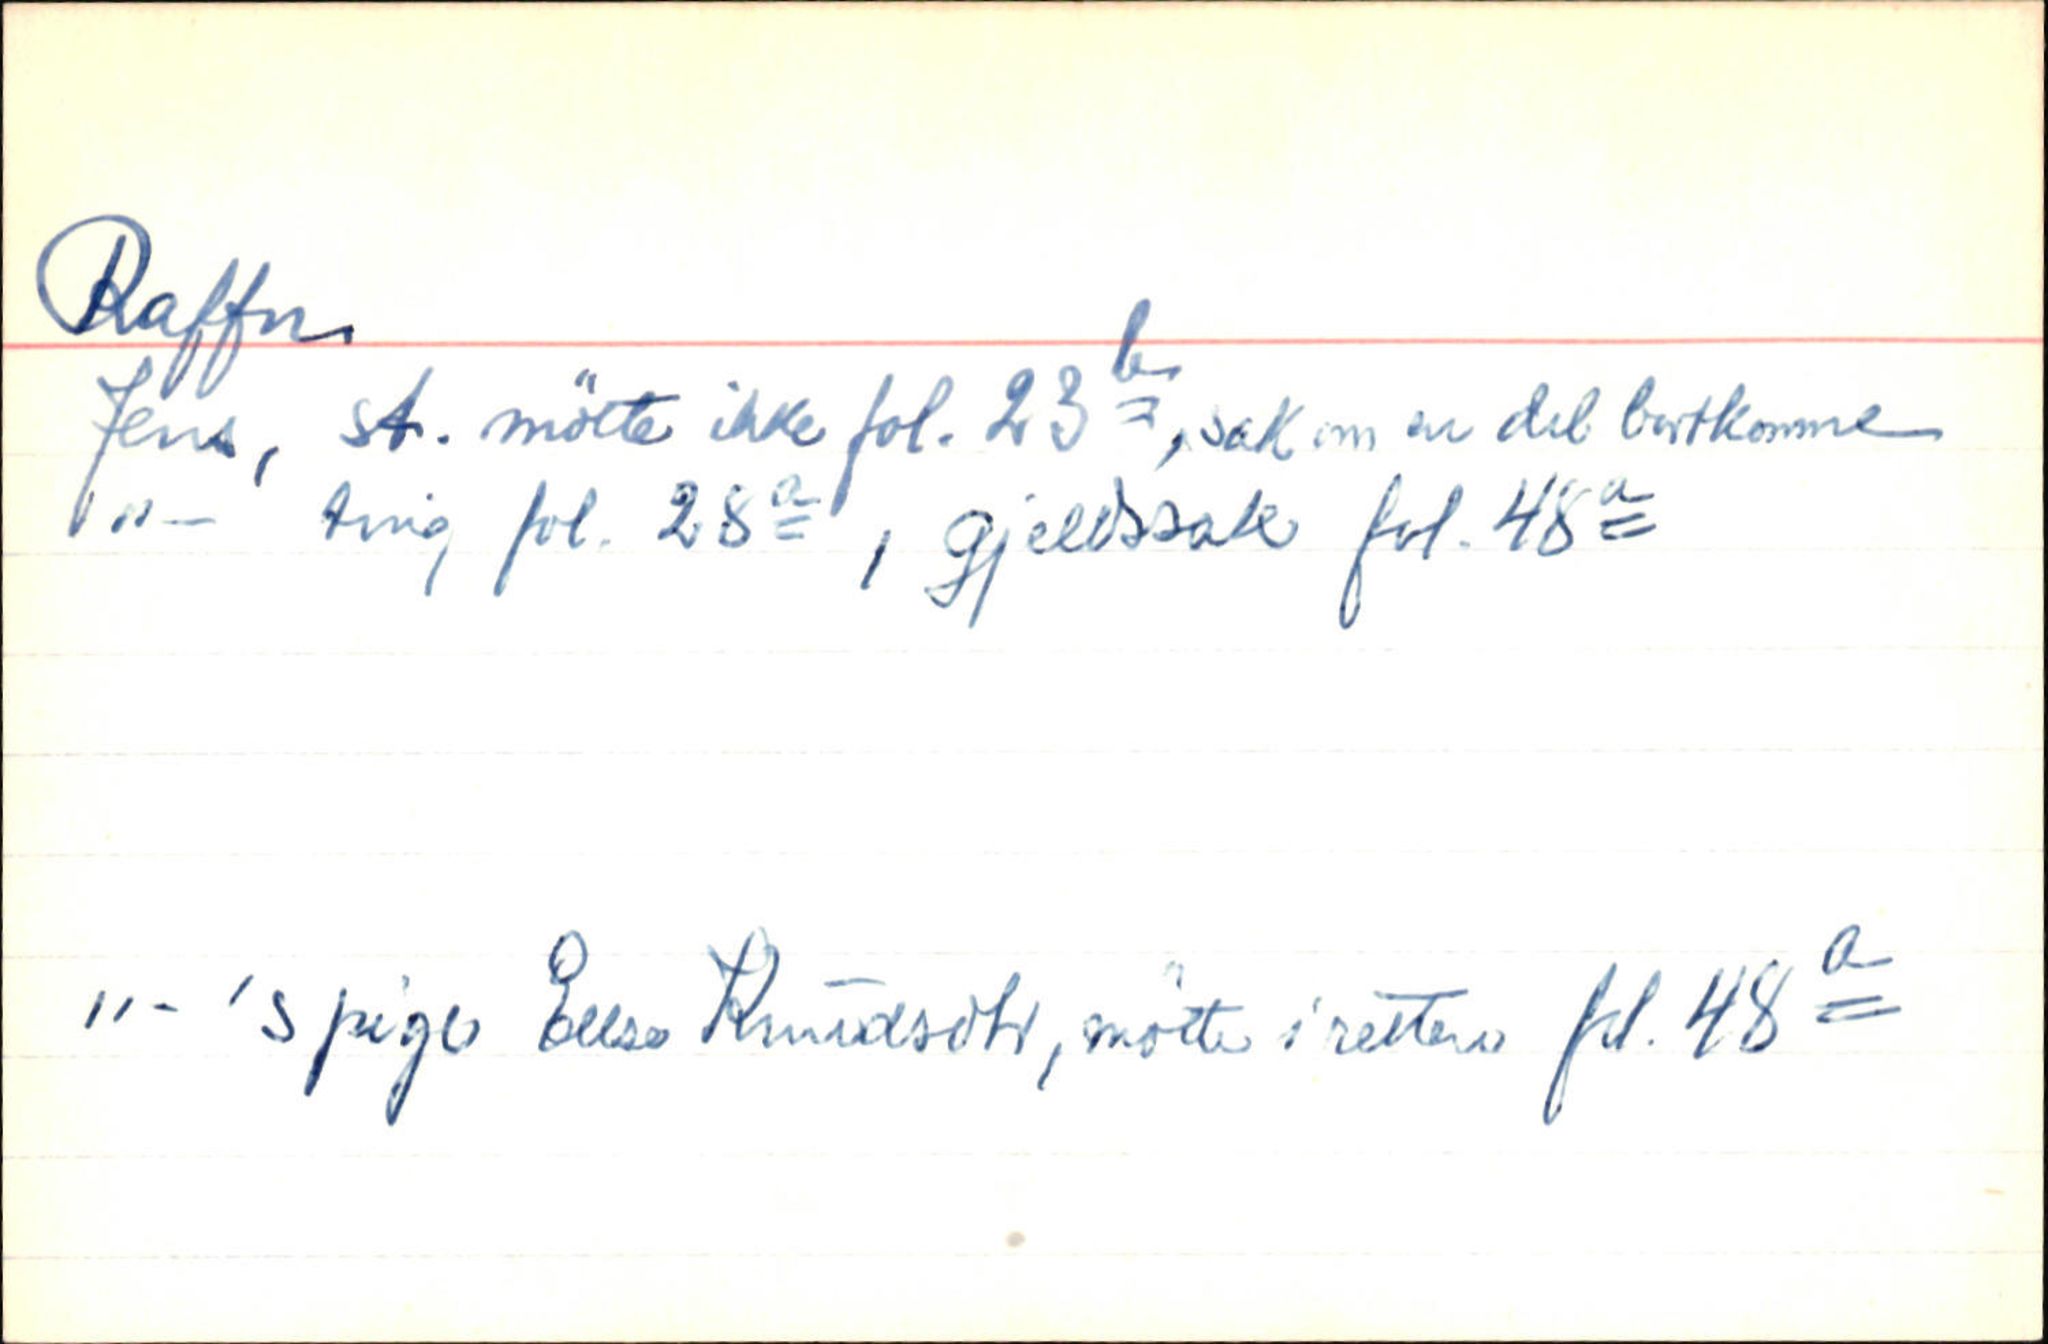 Raffn
Jens, st. mötte ikke fol. 23b, sak om en del bortkomne
"- ting fol. 28a, gjeldssak fol. 48a
"- 's pige Ellse Knudsdtr, mötte i retten fol. 48a